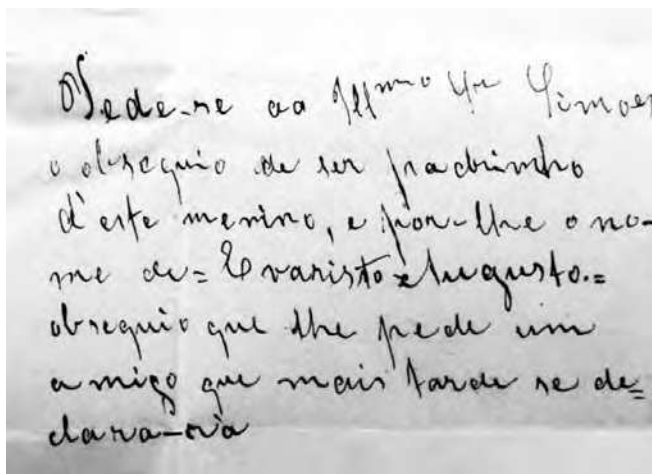 Pede-se ao Ill^mo Sr Simões
o obsequio de ser padrinho
d'este menino, e pôr-lhe o no-
me de = Evaristo Augusto. =
obsequio que lhe pede um
amigo que mais tarde se de=
clara-rà